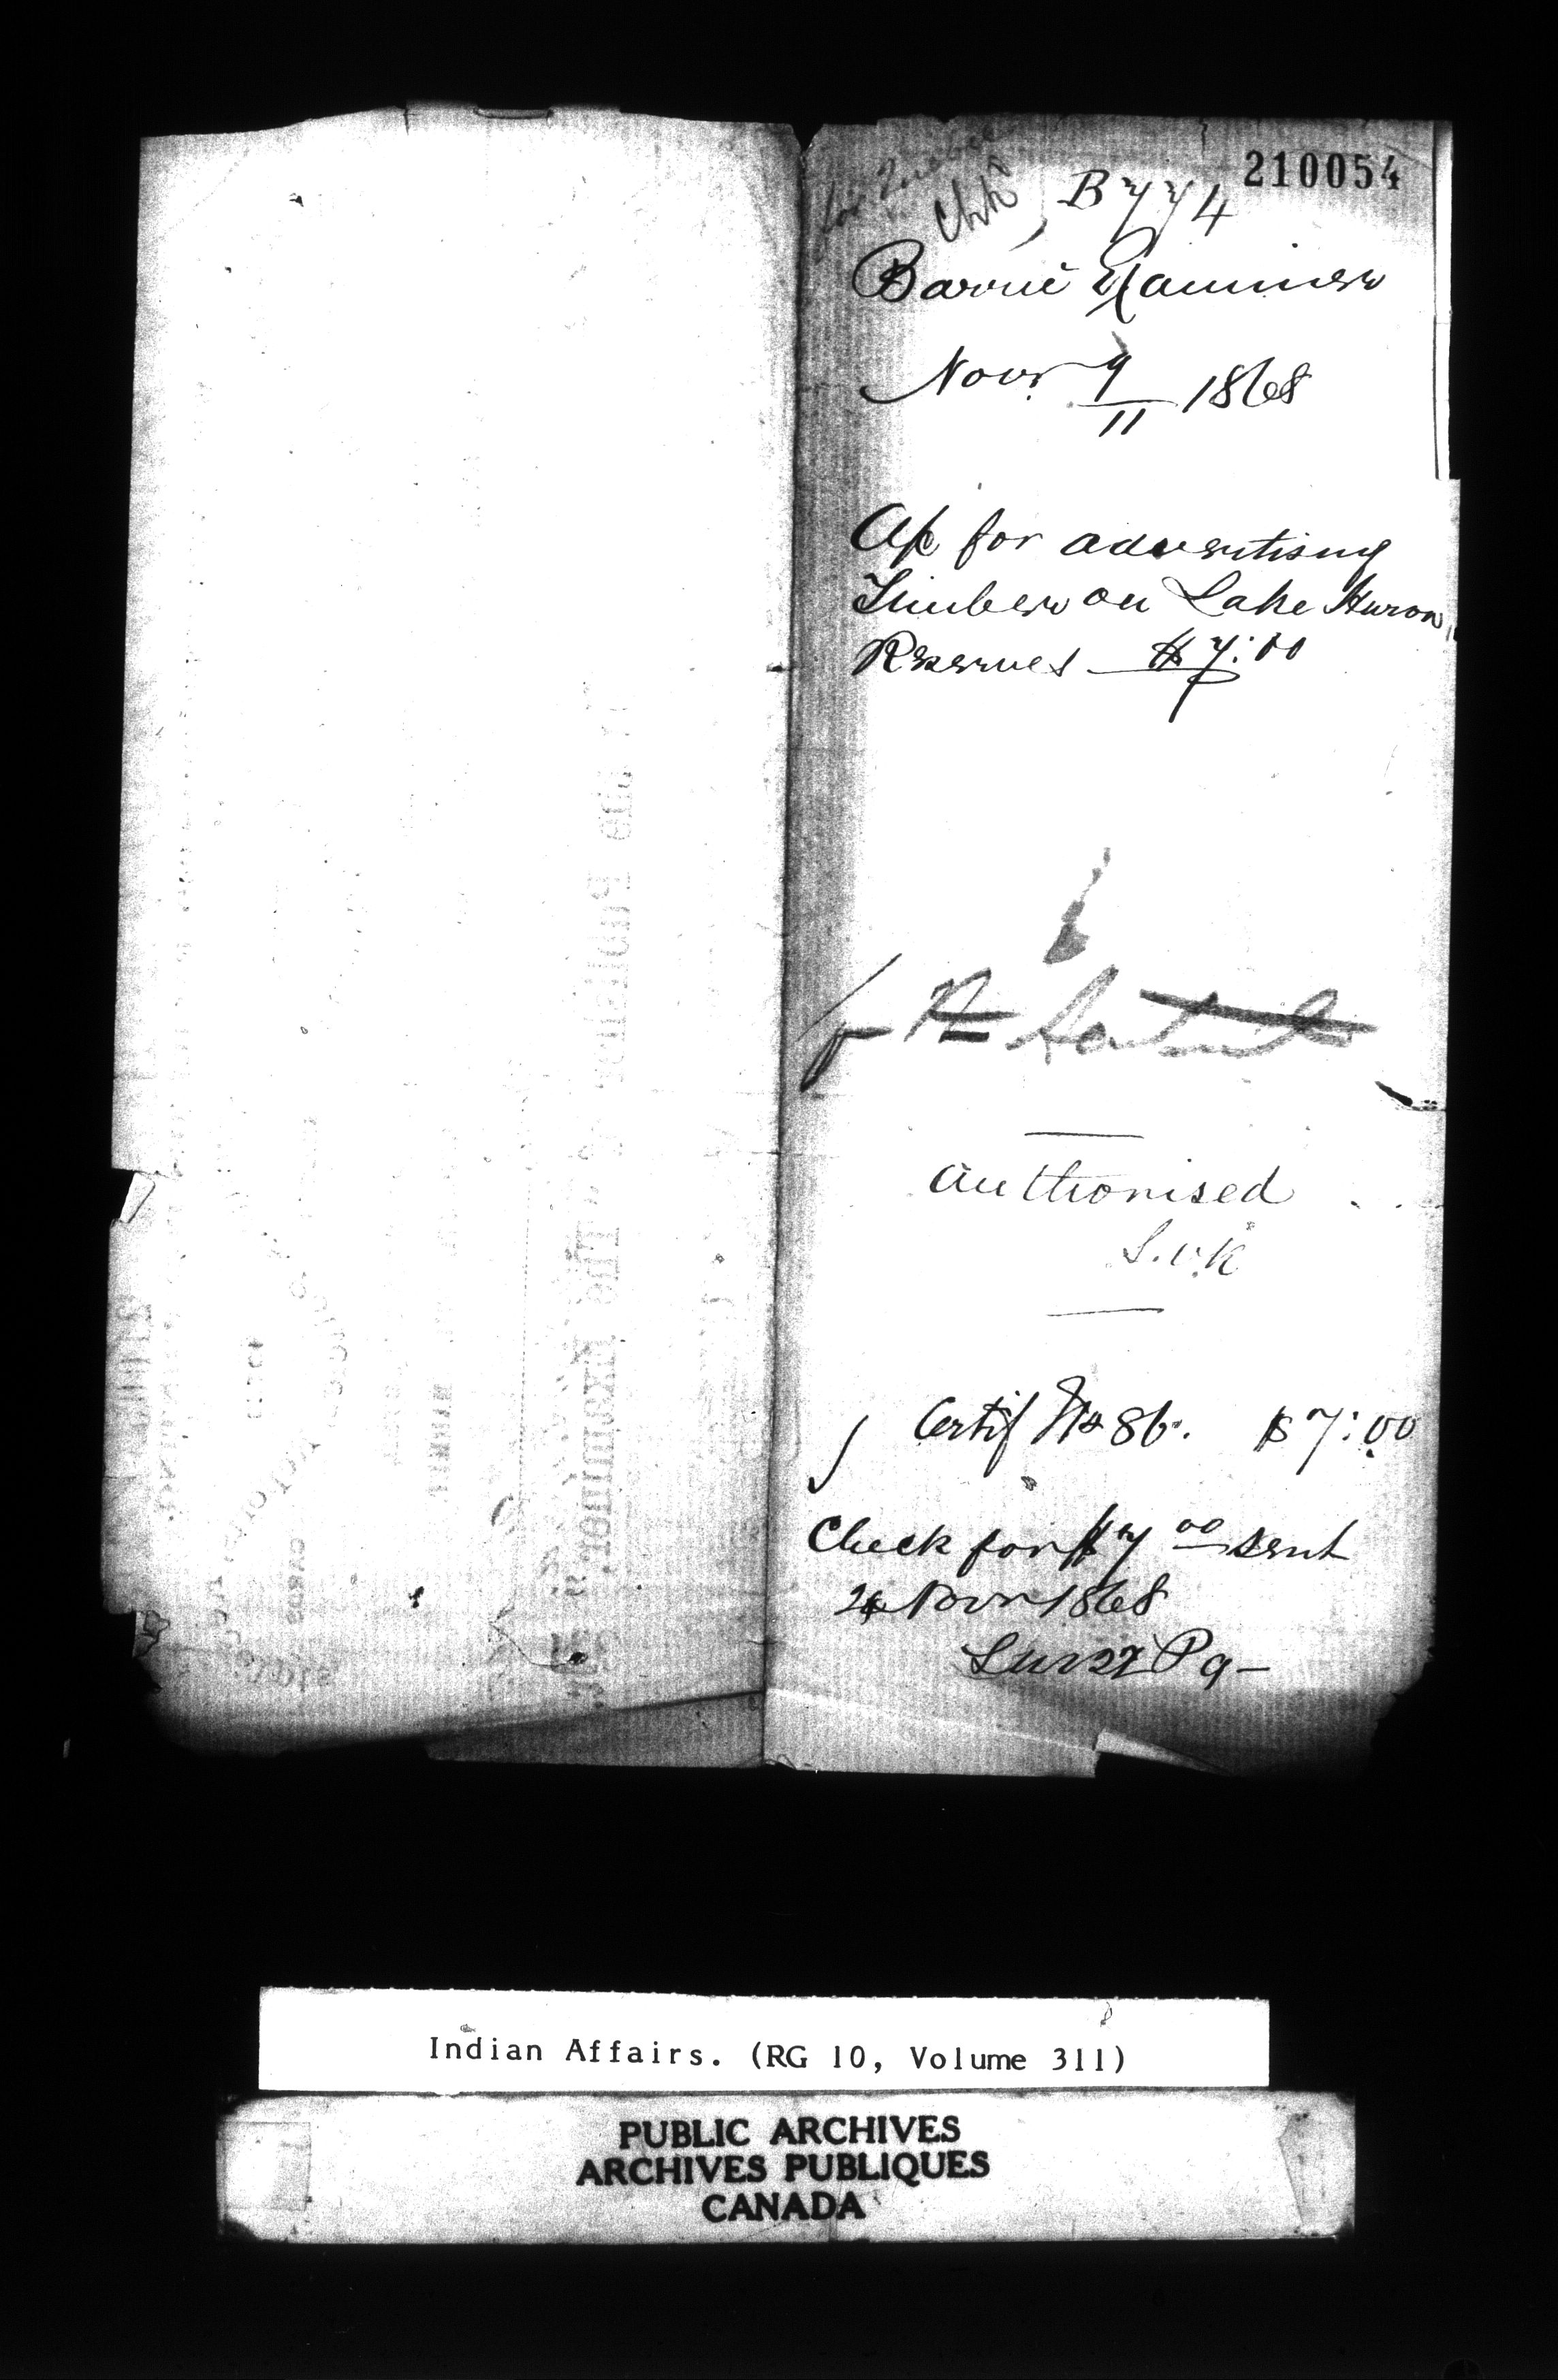 210054
B 774
Barrie Examiner
Novr 9/11 1868
A/c for advertising
Timber on Lake Huron
Reserves $7:00
for
Authorised
S.v.K
Certif No 86. $7:00
Check for $7 00 sent
Novr 1868
Pg
Indian Affairs. (RG 10, Volume 311)
PUBLIC ARCHIVES
ARCHIVES PUBLIQUES
CANADA